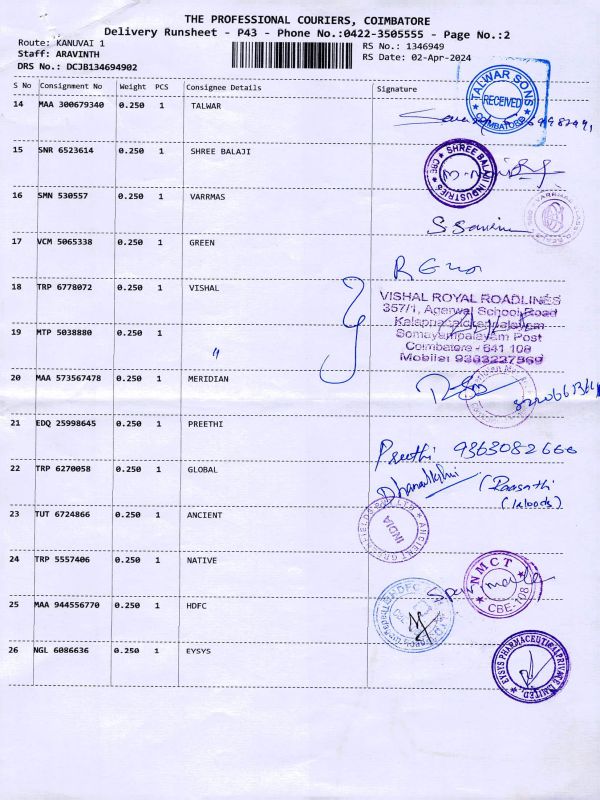 THE PROFESSIONAL COURIERS, COIMBATORE
Delivery Runsheet - P43 - Phone No.:0422-3505555 - Page No.:2
Route: KANUVAI 1
Staff: ARAVINTH
DRS No.: DCJB134694902
RS No.: 1346949
RS Date: 02-Apr-2024
S No Consignment No Weight PCS Consignee Details Signature
14 MAA 300679340 0.250 1 TALWAR
TALWAR SONS
RECEIVED
COIMBATORE
15 SNR 6523614 0.250 1 SHREE BALAJI
SHREE BALAJI INDUSTRIES
CBE
16 SMN 530557 0.250 1 VARRMAS
17 VCM 5065338 0.250 1 GREEN
18 TRP 6778072 0.250 1 VISHAL
VISHAL ROYAL ROADLINES
357/1, Agarwal School Road
Somayampalayam Post
Coimbatore - 641 108
Mobile: 9363227569
19 MTP 5038880 0.250 1 "
20 MAA 573567478 0.250 1 MERIDIAN
21 EDQ 25998645 0.250 1 PREETHI
Preethi 9363082666
22 TRP 6270058 0.250 1 GLOBAL
23 TUT 6724866 0.250 1 ANCIENT
INDIA
24 TRP 5557406 0.250 1 NATIVE
NMCT
CBE-108
25 MAA 944556770 0.250 1 HDFC
26 NGL 6086636 0.250 1 EYSYS
EYSYS PHARMACEUTICAL PRIVATE LIMITED